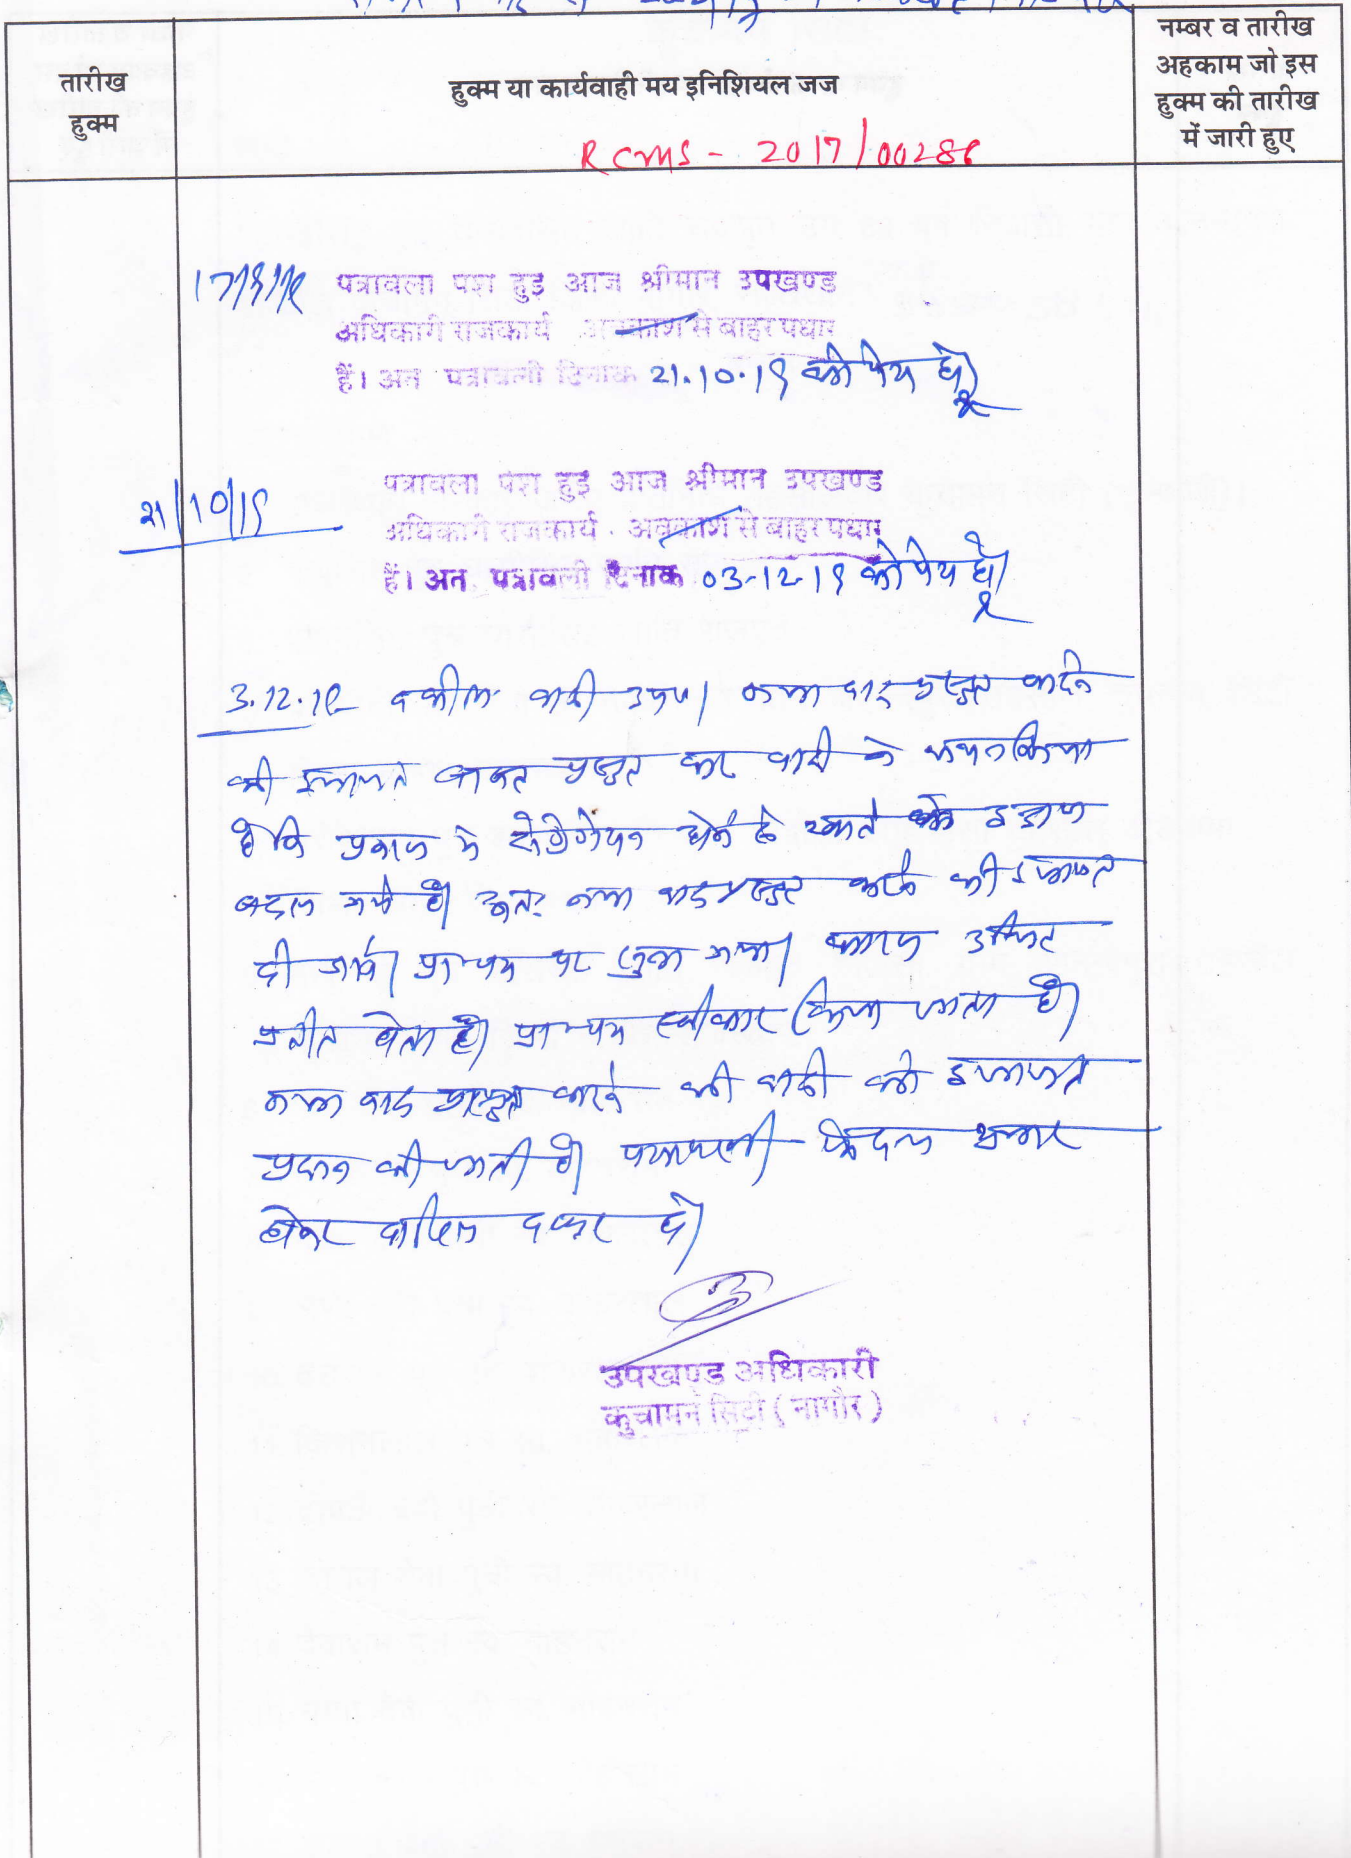 तारीख
हुक्म
हुक्म या कार्यवाही मय इनिशियल जज
नम्बर व तारीख
अहकाम जो इस
हुक्म की तारीख
में जारी हुए
RCMS - 2017/00286
पत्रावली पेश हुई आज श्रीमान उपखण्ड
अधिकारी राजकार्य अवकाश से बाहर पधारे
हैं। अत पत्रावली दिनांक 21.10.19 को पेश हो।
21/10/19
पत्रावली पेश हुई आज श्रीमान उपखण्ड
अधिकारी राजकार्य . अवकाश से बाहर पधारे
हैं। अत पत्रावली दिनांक 03-12-19 को पेश हो।
3.12.19 वकील वादी उप०। नया वाद प्रस्तुत करने
की इजाजत बाबत प्रस्तुत कर वादी ने कथन किया
है कि प्रकरण में सेग्रीगेशन होने से खाते
बदल गये है। अतः नया वाद प्रस्तुत करने की इजाजत
दी जावे। प्रा० पत्र पर सुना गया। कारण उचित
प्रतीत होता है। प्रा० पत्र स्वीकार किया जाता है।
नया वाद प्रस्तुत करने की वादी को इजाजत
प्रदान की जाती है। पत्रावली फैसल शुमार
होकर दाखिल दफ्तर हो।
उपखण्ड अधिकारी
कुचामन सिटी (नागौर)